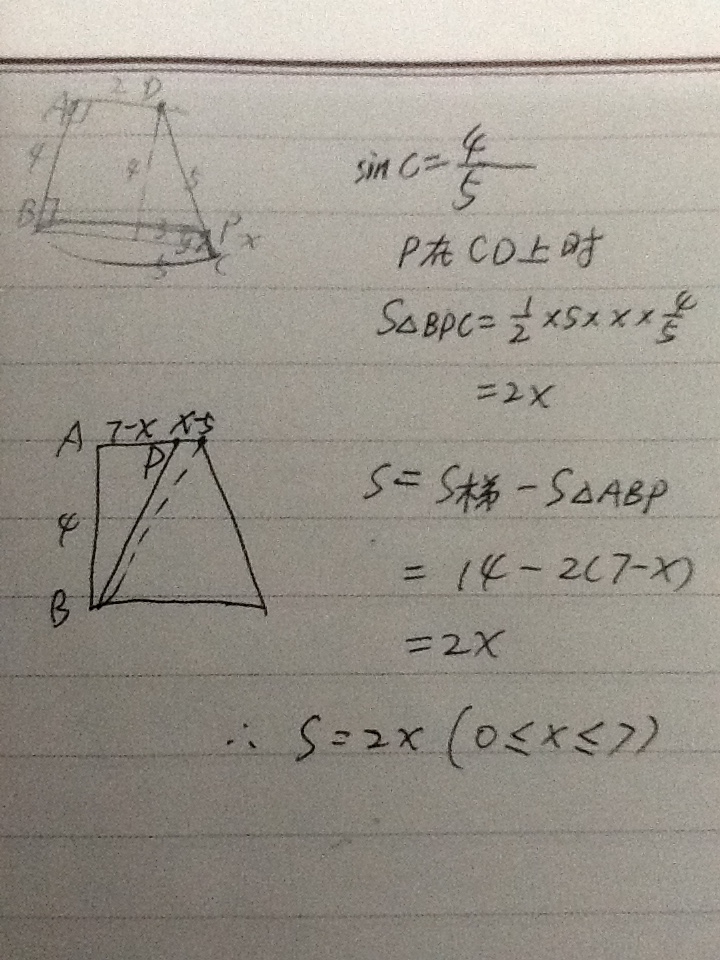 A 2 D
4 4 5
B 3 P x
5 C
sin C = 4/5
P在CD上时
S△BPC = 1/2 × 5 × x × 4/5
= 2x
A 7-x x-5
P
4
B
S = S梯 - S△ABP
= 14 - 2(7-x)
= 2x
∴ S = 2x (0≤x≤7)